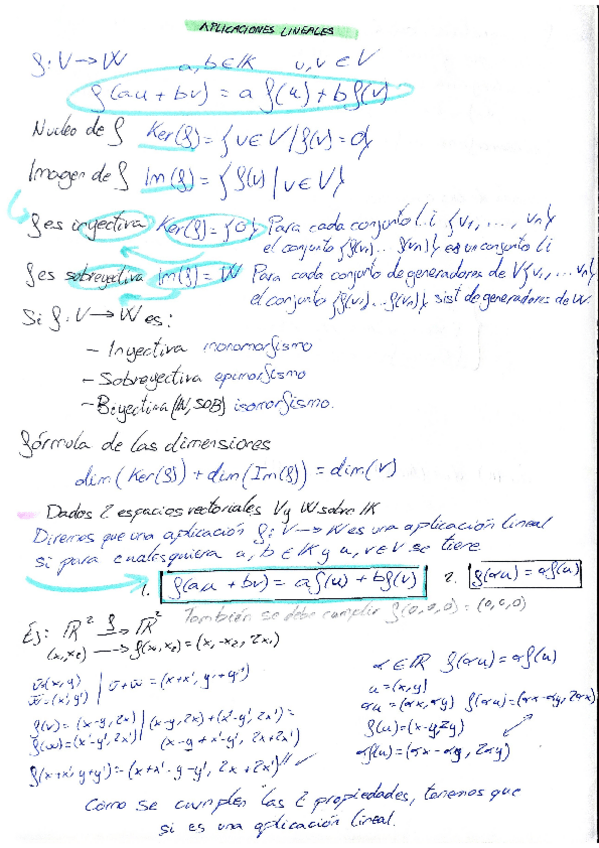 APLICACIONES LINEALES
f: V → W   a, b ∈ IK   u, v ∈ V
f(au + bv) = a f(u) + b f(v)
Nucleo de f   Ker(f) = {v ∈ V / f(v) = 0}
Imagen de f   Im(f) = {f(v) | v ∈ V}
f es inyectiva   Ker(f) = {0}   Para cada conjunto l.i {v1, ..., vn}
el conjunto {f(v1) .. f(vn)} es un conjunto li
f es sobreyectiva   Im(f) = W   Para cada conjunto de generadores de V {v1, ... vn}
el conjunto {f(v1) .. f(vn)} sist de generadores de W.
Si f: V → W es:
– Inyectiva monomorfismo
– Sobreyectiva epimorfismo
– Biyectiva (IN, SOB) isomorfismo.
fórmula de las dimensiones
dim(Ker(f)) + dim(Im(f)) = dim(V)
Dados 2 espacios vectoriales V y W sobre IK
Diremos que una aplicación f: V → W es una aplicación lineal
si para cualesquiera a, b ∈ IK y u, v ∈ V se tiene
1. f(au + bv) = a f(u) + b f(v)   2. f(αu) = αf(u)
También se debe cumplir f(0,0,0) = (0,0,0)
Ej: IR² f→ IR²
(x1, x2) → f(x1, x2) = (x1 - x2, 2x1)
v=(x, y)
w=(x', y') | v + w = (x+x', y+y')
f(v) = (x-y, 2x)
f(w) = (x'-y', 2x') | (x-y, 2x) + (x'-y', 2x') =
(x-y + x'-y', 2x+2x')
f(x+x', y+y') = (x+x' - y-y', 2x + 2x') // ✓
α ∈ IR   f(αu) = αf(u)
u = (x, y)
αu = (αx, αy)   f(αu) = (αx - αy, 2αx)
f(u) = (x-y, 2y)
αf(u) = (αx - αy, 2αy)
Como se cumplen las 2 propiedades, tenemos que
si es una aplicación lineal.